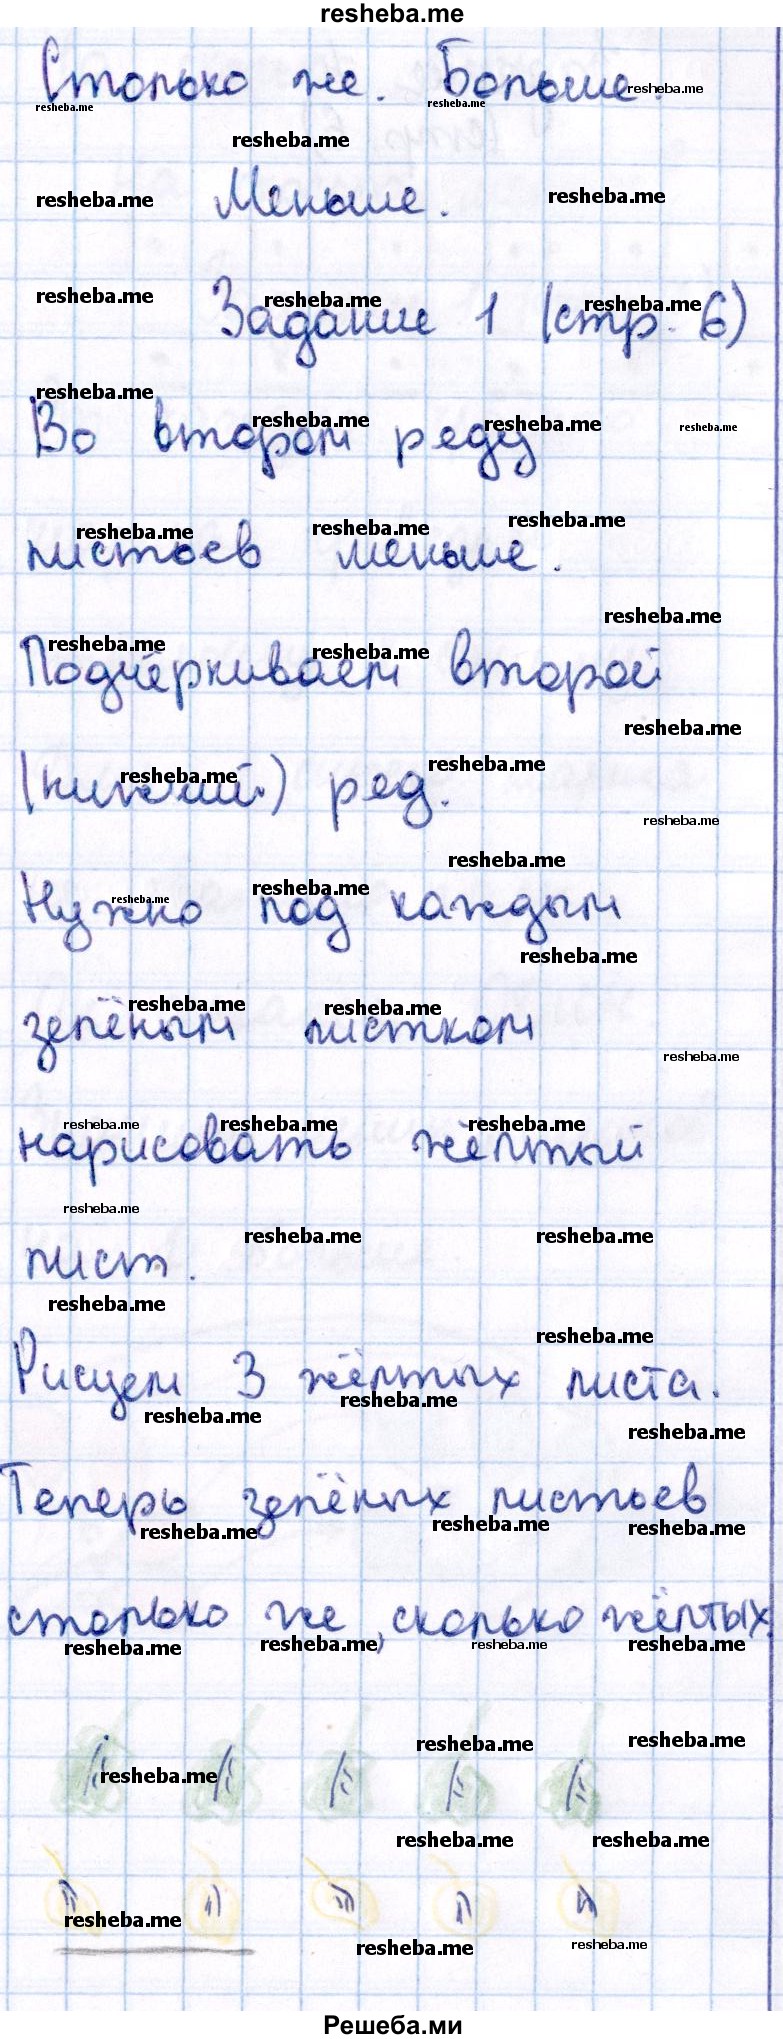 resheba.me
Столько же. Больше.
resheba.me
resheba.me
resheba.me
resheba.me
resheba.me Меньше. resheba.me
resheba.me resheba.me resheba.me
Задание 1 (стр. 6)
resheba.me
resheba.me resheba.me resheba.me
Во втором реду
resheba.me resheba.me resheba.me
листьев меньше.
resheba.me
resheba.me resheba.me
Подчёркиваем второй
resheba.me
resheba.me resheba.me
(нижний) ред.
resheba.me
resheba.me
resheba.me resheba.me
Нужно под каждым
resheba.me
resheba.me resheba.me
зелёным листком
resheba.me
resheba.me resheba.me resheba.me
нарисовать жёлтый
resheba.me
resheba.me resheba.me
лист.
resheba.me
resheba.me
Рисуем 3 жёлтых листа.
resheba.me resheba.me
resheba.me
Теперь зелёных листьев
resheba.me resheba.me resheba.me
столько же, сколько жёлтых.
resheba.me resheba.me resheba.me resheba.me
resheba.me resheba.me
resheba.me
resheba.me resheba.me
resheba.me
resheba.me resheba.me
Решеба.ми